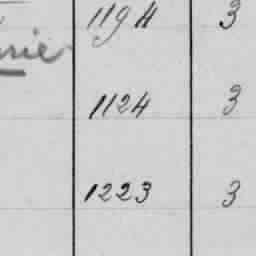 1194 3
1124 3
1223 3